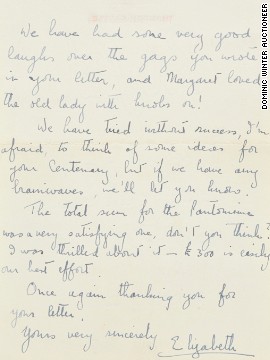 We have had some very good
laughs over the gags you wrote
in your letter, and Margaret loved
the old lady with knobs on!
We have tried without success, I'm
afraid, to think of some ideas for
your Centenary, but if we have any
brainwaves, we'll let you know.
The total sum for the Pantomime
was a very satisfying one, don't you think?
I was thrilled about it – £300 is easily
our best effort.
Once again thanking you for
your letter,
Yours very sincerely
Elizabeth
DOMINIC WINTER AUCTIONEER